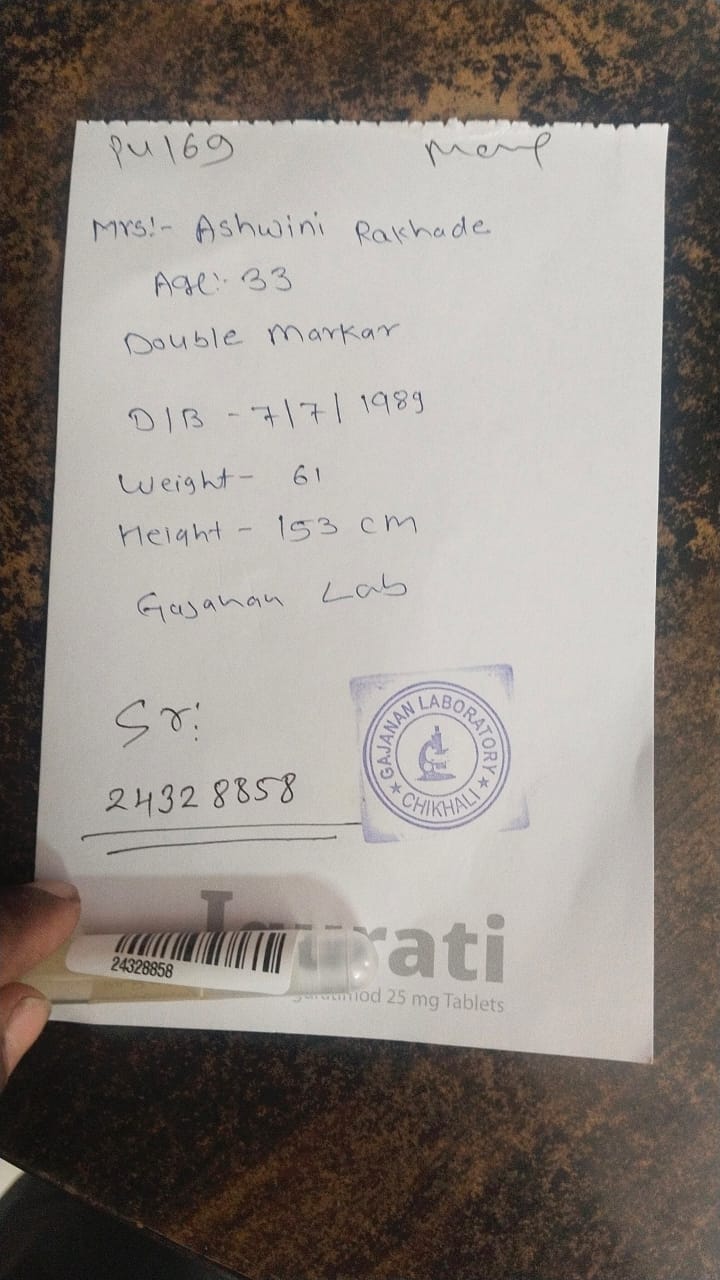 PU169
Mrs:- Ashwini Rakhade
Age:- 33
Double Markar
D/B - 7/7/1989
Weight- 61
Height - 153 cm
Gajanan Lab
Sr:
24328858
GAJANAN LABORATORY
★ CHIKHALI ★
24328858
25 mg Tablets